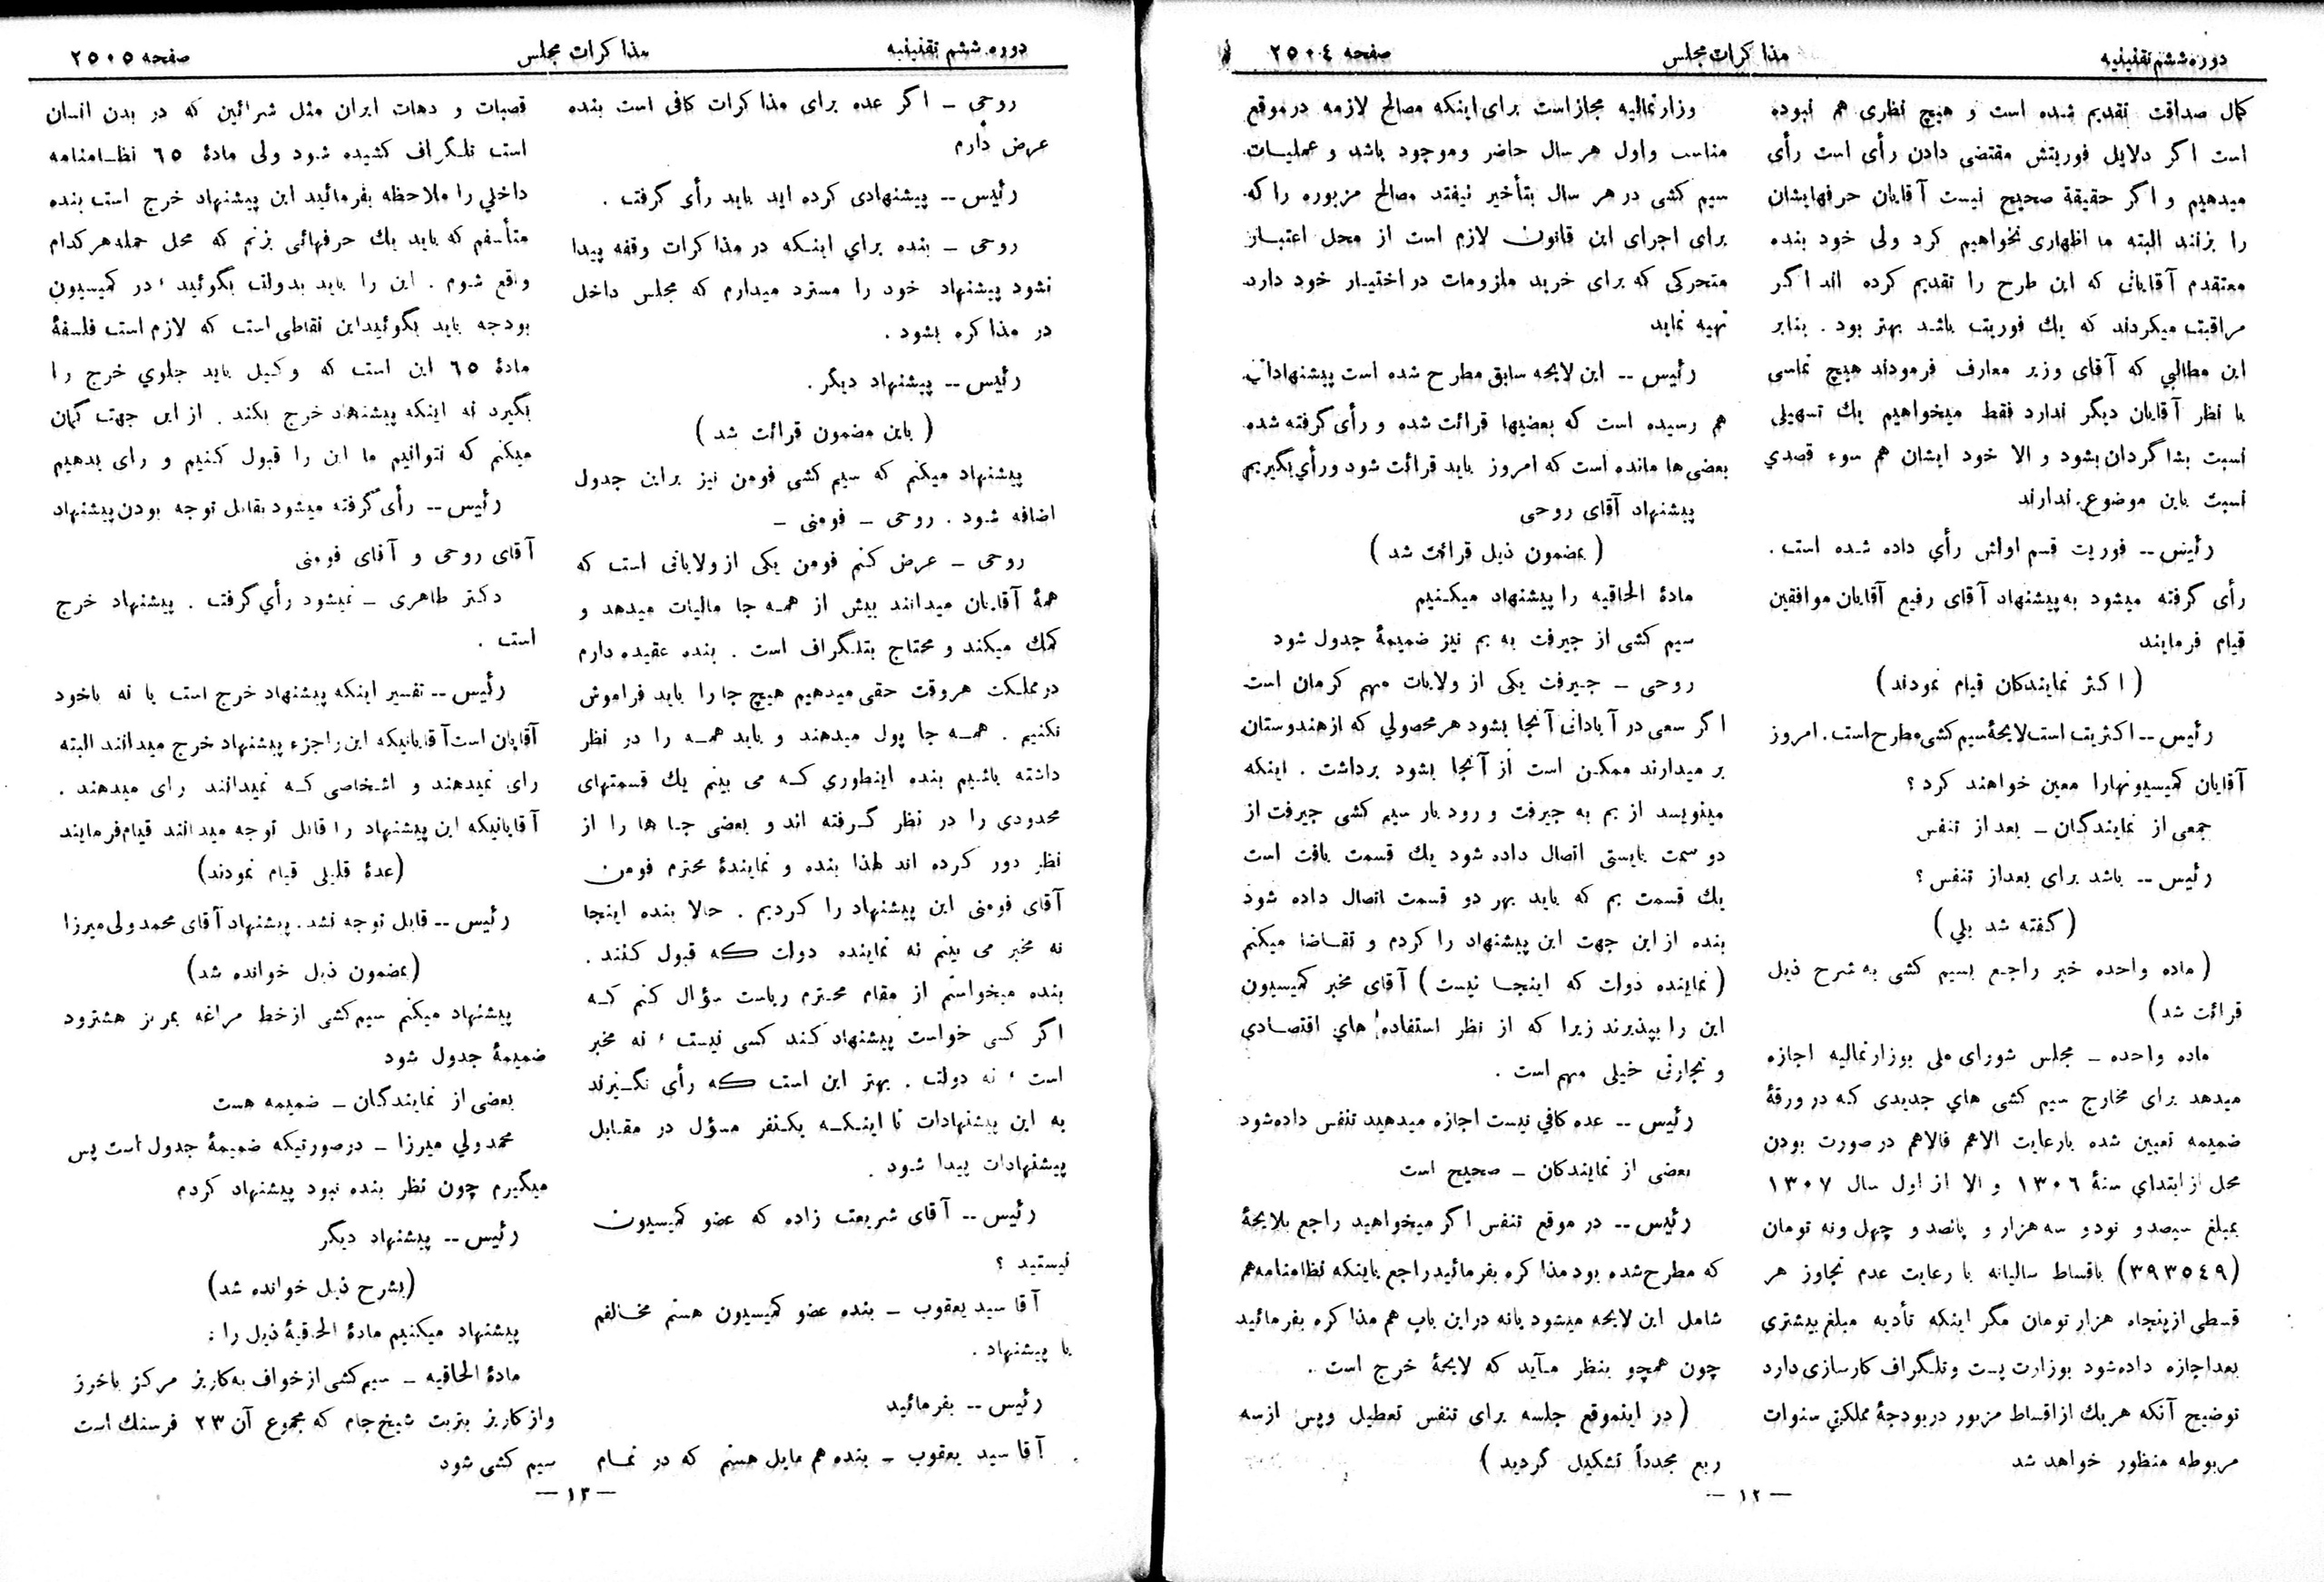 دوره ششم تقنینیه
مذاکرات مجلس
صفحه ۲۵۰۴
کمال صداقت تقدیم شده است و هیچ نظری هم نبوده
است اگر دلایل فوریتش مقتضی دادن رأی است رأی
میدهیم و اگر حقیقة صحیح نیست آقایان حرفهایشان
را بزنند البته ما اظهاری نخواهیم کرد ولی خود بنده
معتقدم آقایانی که این طرح را تقدیم کرده اند اگر
مراقبت میکردند که یك فوریت باشد بهتر بود . بنابر
این مطالبي که آقای وزیر معارف فرمودند هیچ تماسی
با نظر آقایان دیگر ندارد فقط میخواهیم یك تسهیلی
نسبت بشاگردان بشود و الا خود ایشان هم سوء قصدي
نسبت باین موضوع ندارند
رئیس -- فوریت قسم اولش رأي داده شده است .
رأی گرفته میشود به پیشنهاد آقای رفیع آقایان موافقین
قیام فرمایند
( اکثر نمایندکان قیام نمودند )
رئیس -- اکثریت است لایحۀ سیم کشی مطرح است . امروز
آقایان کمیسیونهارا معین خواهند کرد ؟
جمعی از نمایندگان ـ بعد از تنفس
رئیس -- باشد برای بعداز تنفس ؟
( گفته شد بلي )
( ماده واحده خبر راجع بسیم کشی به شرح ذیل
قرائت شد )
ماده واحده ـ مجلس شورای ملی بوزارتمالیه اجازه
میدهد برای مخارج سیم کشی هاي جدیدی که در ورقۀ
ضمیمه تعیین شده بارعایت الاهم فالاهم در صورت بودن
محل از ابتداي سنۀ ۱۳۰۶ و الا از اول سال ۱۳۰۷
بمبلغ سیصد و نود و سه هزار و پانصد و چهل ونه تومان
( ۳۹۳۵٤۹ ) باقساط سالیانه با رعایت عدم تجاوز هر
قسطی از پنجاه هزار تومان مگر اینکه تأدیه مبلغ بیشتری
بعداجازه داده شود بوزارت پست وتلگراف کارسازی دارد
توضیح آنکه هریك از اقساط مزبور در بودجۀ مملکتي سنوات
مربوطه منظور خواهد شد
وزارتمالیه مجازاست برای اینکه مصالح لازمه درموقع
مناسب واول هر سال حاضر وموجود باشد و عملیات
سیم کشی در هر سال بتأخیر نیفتد مصالح مزبوره را که
برای اجرای این قانون لازم است از محل اعتبار
متحرکی که برای خرید ملزومات در اختیار خود دارد
تهیه نماید
رئیس -- این لایحه سابق مطرح شده است پیشنهاداتی
هم رسیده است که بعضیها قرائت شده و رأی گرفته شده
بعضی ها مانده است که امروز باید قرائت شود ورأي بگیریم
پیشنهاد آقای روحی
( بمضمون ذیل قرائت شد )
مادۀ الحاقیه را پیشنهاد میکنیم
سیم کشی از جیرفت به بم نیز ضمیمۀ جدول شود
روحی ـ جیرفت یکی از ولایات مهم کرمان است
اگر سعی در آبادانی آنجا بشود هر محصولي که ازهندوستان
بر میدارند ممکن است از آنجا بشود برداشت . اینکه
مینویسد از بم به جیرفت و رودبار سیم کشی جیرفت از
دو سمت بایستی اتصال داده شود یك قسمت بافت است
یك قسمت بم که باید بهر دو قسمت اتصال داده شود
بنده از این جهت این پیشنهاد را کردم و تقاضا میکنم
( نماینده دولت که اینجا نیست ) آقای مخبر کمیسیون
این را بپذیرند زیرا که از نظر استفاده هاي اقتصادی
و تجارتی خیلی مهم است .
رئیس -- عده کافي نیست اجازه میدهید تنفس داده شود
بعضی از نمایندکان ـ صحیح است
رئیس -- در موقع تنفس اگر میخواهید راجع بلایحۀ
که مطرح شده بود مذاکره بفرمائید راجع باینکه نظامنامه هم
شامل این لایحه میشود یانه دراین باب هم مذاکره بفرمائید
چون همچو بنظر میآید که لایحۀ خرج است .
( در اینموقع جلسه برای تنفس تعطیل وپس ازسه
ربع مجدداً تشکیل گردید )
— ۱۲ —
دوره ششم تقنینیه
مذاکرات مجلس
صفحه ۲۵۰۵
روحي ـ اگر عده برای مذاکرات کافی است بنده
عرض دارم
رئیس -- پیشنهادی کرده اید باید رأی گرفت .
روحی ـ بنده براي اینکه در مذاکرات وقفه پیدا
نشود پیشنهاد خود را مسترد میدارم که مجلس داخل
در مذاکره بشود .
رئیس -- پیشنهاد دیگر .
( باین مضمون قرائت شد )
پیشنهاد میکنم که سیم کشی فومن نیز براین جدول
اضافه شود . روحی ـ فومنی ـ
روحی ـ عرض کنم فومن یکی از ولایاتی است که
همۀ آقایان میدانند بیش از همه جا مالیات میدهد و
کمك میکند و محتاج بتلگراف است . بنده عقیده دارم
در مملکت هروقت حقی میدهیم هیچ جا را باید فراموش
نکنیم . همه جا پول میدهند و باید همه را در نظر
داشته باشیم بنده اینطوري که می بینم یك قسمتهای
محدودی را در نظر گرفته اند و بعضی جا ها را از
نظر دور کرده اند لهذا بنده و نمایندۀ محترم فومن
آقای فومنی این پیشنهاد را کردیم . حالا بنده اینجا
نه مخبر می بینم نه نماینده دولت که قبول کنند .
بنده میخواستم از مقام محترم ریاست سؤال کنم که
اگر کسی خواست پیشنهاد کند کسی نیست ، نه مخبر
است ، نه دولت . بهتر این است که رأی نگیرند
به این پیشنهادات تا اینکه یکنفر مسؤل در مقابل
پیشنهادات پیدا شود .
رئیس -- آقای شریعت زاده که عضو کمیسیون
نیستید ؟
آقا سید یعقوب ـ بنده عضو کمیسیون هستم مخالفم
با پیشنهاد .
رئیس -- بفرمائید
آقا سید یعقوب ـ بنده هم مایل هستم که در تمام
قصبات و دهات ایران مثل شرائین که در بدن انسان
است تلگراف کشیده شود ولی مادۀ ٦۵ نظامنامه
داخلي را ملاحظه بفرمائید این پیشنهاد خرج است بنده
متأسفم که باید یك حرفهائی بزنم که محل حمله هرکدام
واقع شوم . این را باید بدولت بگوئید ، در کمیسیون
بودجه باید بگوئیداین نقاطی است که لازم است فلسفۀ
مادۀ ٦۵ این است که وکیل باید جلوي خرج را
بگیرد نه اینکه پیشنهاد خرج بکند . از این جهت گمان
میکنم که نتوانیم ما این را قبول کنیم و رای بدهیم
رئیس -- رأی گرفته میشود بقابل توجه بودن پیشنهاد
آقای روحی و آقای فومنی
دکتر طاهری ـ نمیشود رأي گرفت . پیشنهاد خرج
است .
رئیس -- تفسیر اینکه پیشنهاد خرج است یا نه باخود
آقایان است آقایانیکه این راجزء پیشنهاد خرج میدانند البته
رای نمیدهند و اشخاصی که نمیدانند رای میدهند .
آقایانیکه این پیشنهاد را قابل توجه میدانند قیام فرمایند
( عدۀ قلیلی قیام نمودند )
رئیس -- قابل توجه نشد . پیشنهاد آقای محمد ولی میرزا
( بمضمون ذیل خوانده شد )
پیشنهاد میکنم سیم کشی ازخط مراغه بمرکز هشترود
ضمیمۀ جدول شود
بعضی از نمایندگان ـ ضمیمه هست
محمد ولي میرزا ـ درصورتیکه ضمیمۀ جدول است پس
میگیرم چون نظر بنده نبود پیشنهاد کردم
رئیس -- پیشنهاد دیگر
( بشرح ذیل خوانده شد )
پیشنهاد میکنیم مادۀ الحاقیۀ ذیل را :
مادۀ الحاقیه ـ سیم کشی ازخواف به کاریز مرکز باخرز
واز کاریز بتربت شیخ جام که مجموع آن ۲۳ فرسنك است
سیم کشی شود
— ۱۳ —